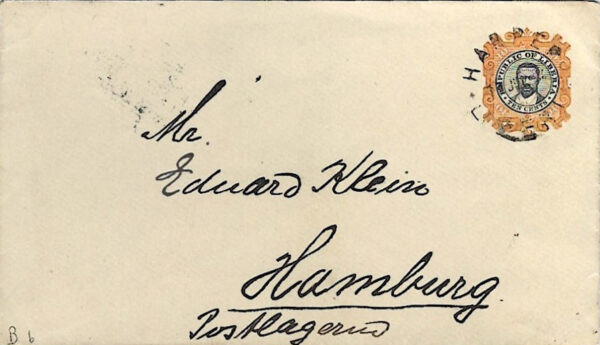 HARPER
REPUBLIC OF LIBERIA
TEN CENTS
Mr.
Eduard Klein
Hamburg
Postlagernd
B 6